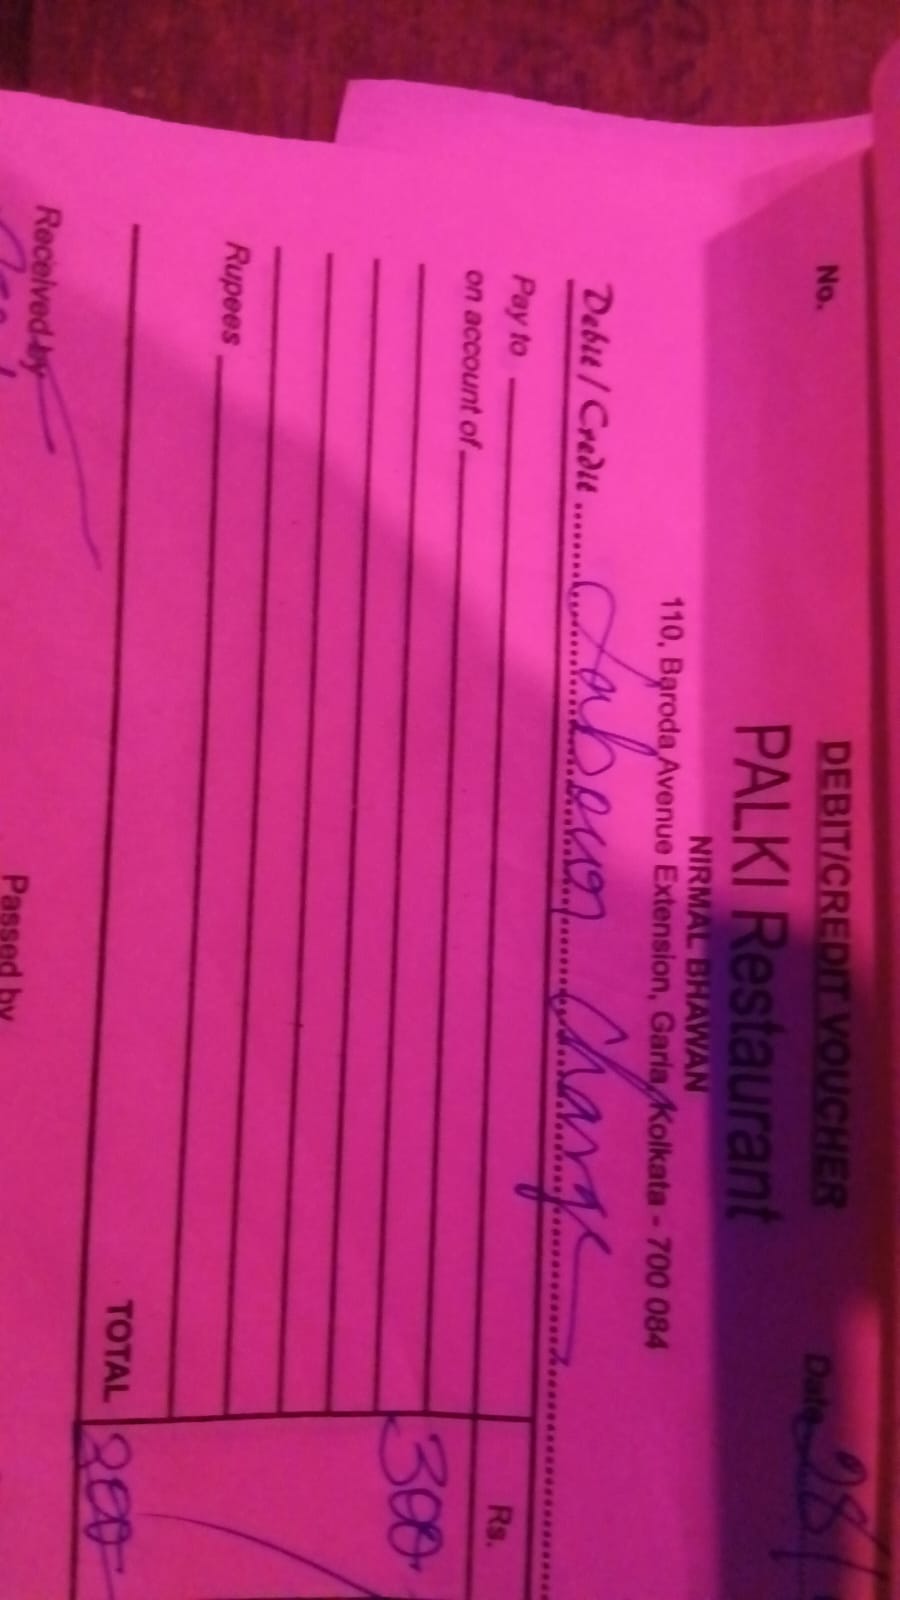 DEBIT/CREDIT VOUCHER
No.
PALKI Restaurant
Date 28/
NIRMAL BHAWAN
110, Baroda Avenue Extension, Garia, Kolkata - 700 084
Debit / Credit Labour Charge
Pay to
Rs.
on account of
300
Rupees
TOTAL 300
Received by
Passed by